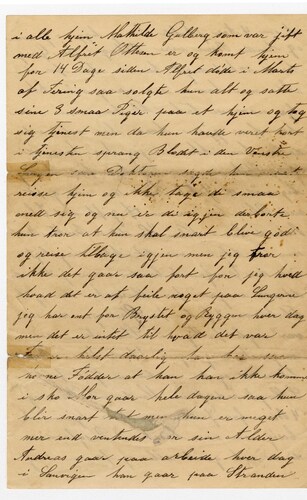 i alle hjem Mathilde Galberg som var jift
med Alfrit Ottesen er og komt hjem
for 14 Dage siden Alfret döde i Marts
af Tering saa solgte hun alt og satte
sine 3 smaa Piger paa et hjem og tog
sig tjenest men da hun hadde veret kort
i tjenesten sprang Blodet i den Venstre
saa Doktoren sagde hun
reisse hjem og ikke tage de smaa
med sig og nu er de igjen derborte
hun tror at hun skal snart blive god
og reise tilbage igjen men jeg tror
ikke det gaar saa fort for jeg hved
hvad det er at feile noget paa Lungerne
jeg har ont for Brystet og Ryggen hver dag
men det er intet til hvad det var
helst daarlig han
Födder at han har ikke kommet
i sko Mor gaar hele dagen saa hun
blir snart men hun er meget
mer end ventendes for sin Alder
Andreas gaar paa arbeide hver dag
i Laurvigen han gaar paa Stranden